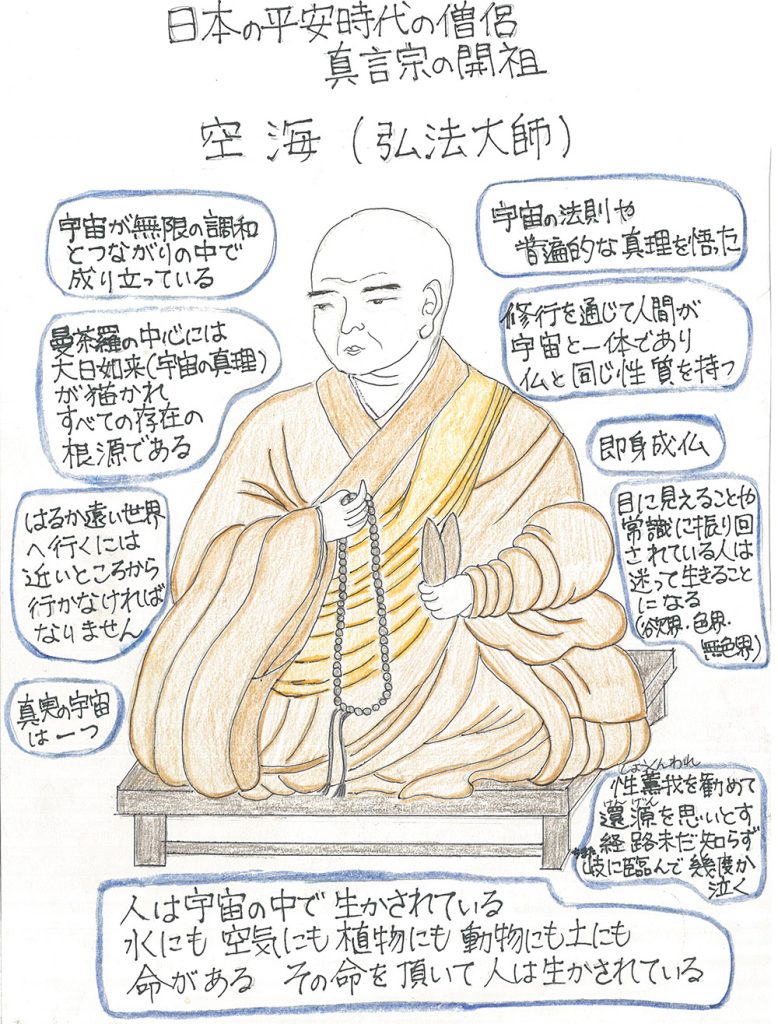 日本の平安時代の僧侶
真言宗の開祖
空海(弘法大師)
宇宙が無限の調和
とつながりの中で
成り立っている
宇宙の法則や
普遍的な真理を悟った
曼荼羅の中心には
大日如来(宇宙の真理)
が描かれ
すべての存在の
根源である
修行を通じて人間が
宇宙と一体であり
仏と同じ性質を持つ
即身成仏
はるか遠い世界
へ行くには
近いところから
行かなければ
なりません
目に見えることや
常識に振り回
されている人は
迷って生きること
になる
(欲界・色界・
無色界)
真実の宇宙
は一つ
しょうくんわれ
性薫我を勧めて
げんげん
還源を思いとす
経路未だ知らず
ちまた
岐に臨んで幾度か
泣く
人は宇宙の中で生かされている
水にも空気にも植物にも動物にも土にも
命がある その命を頂いて人は生かされている